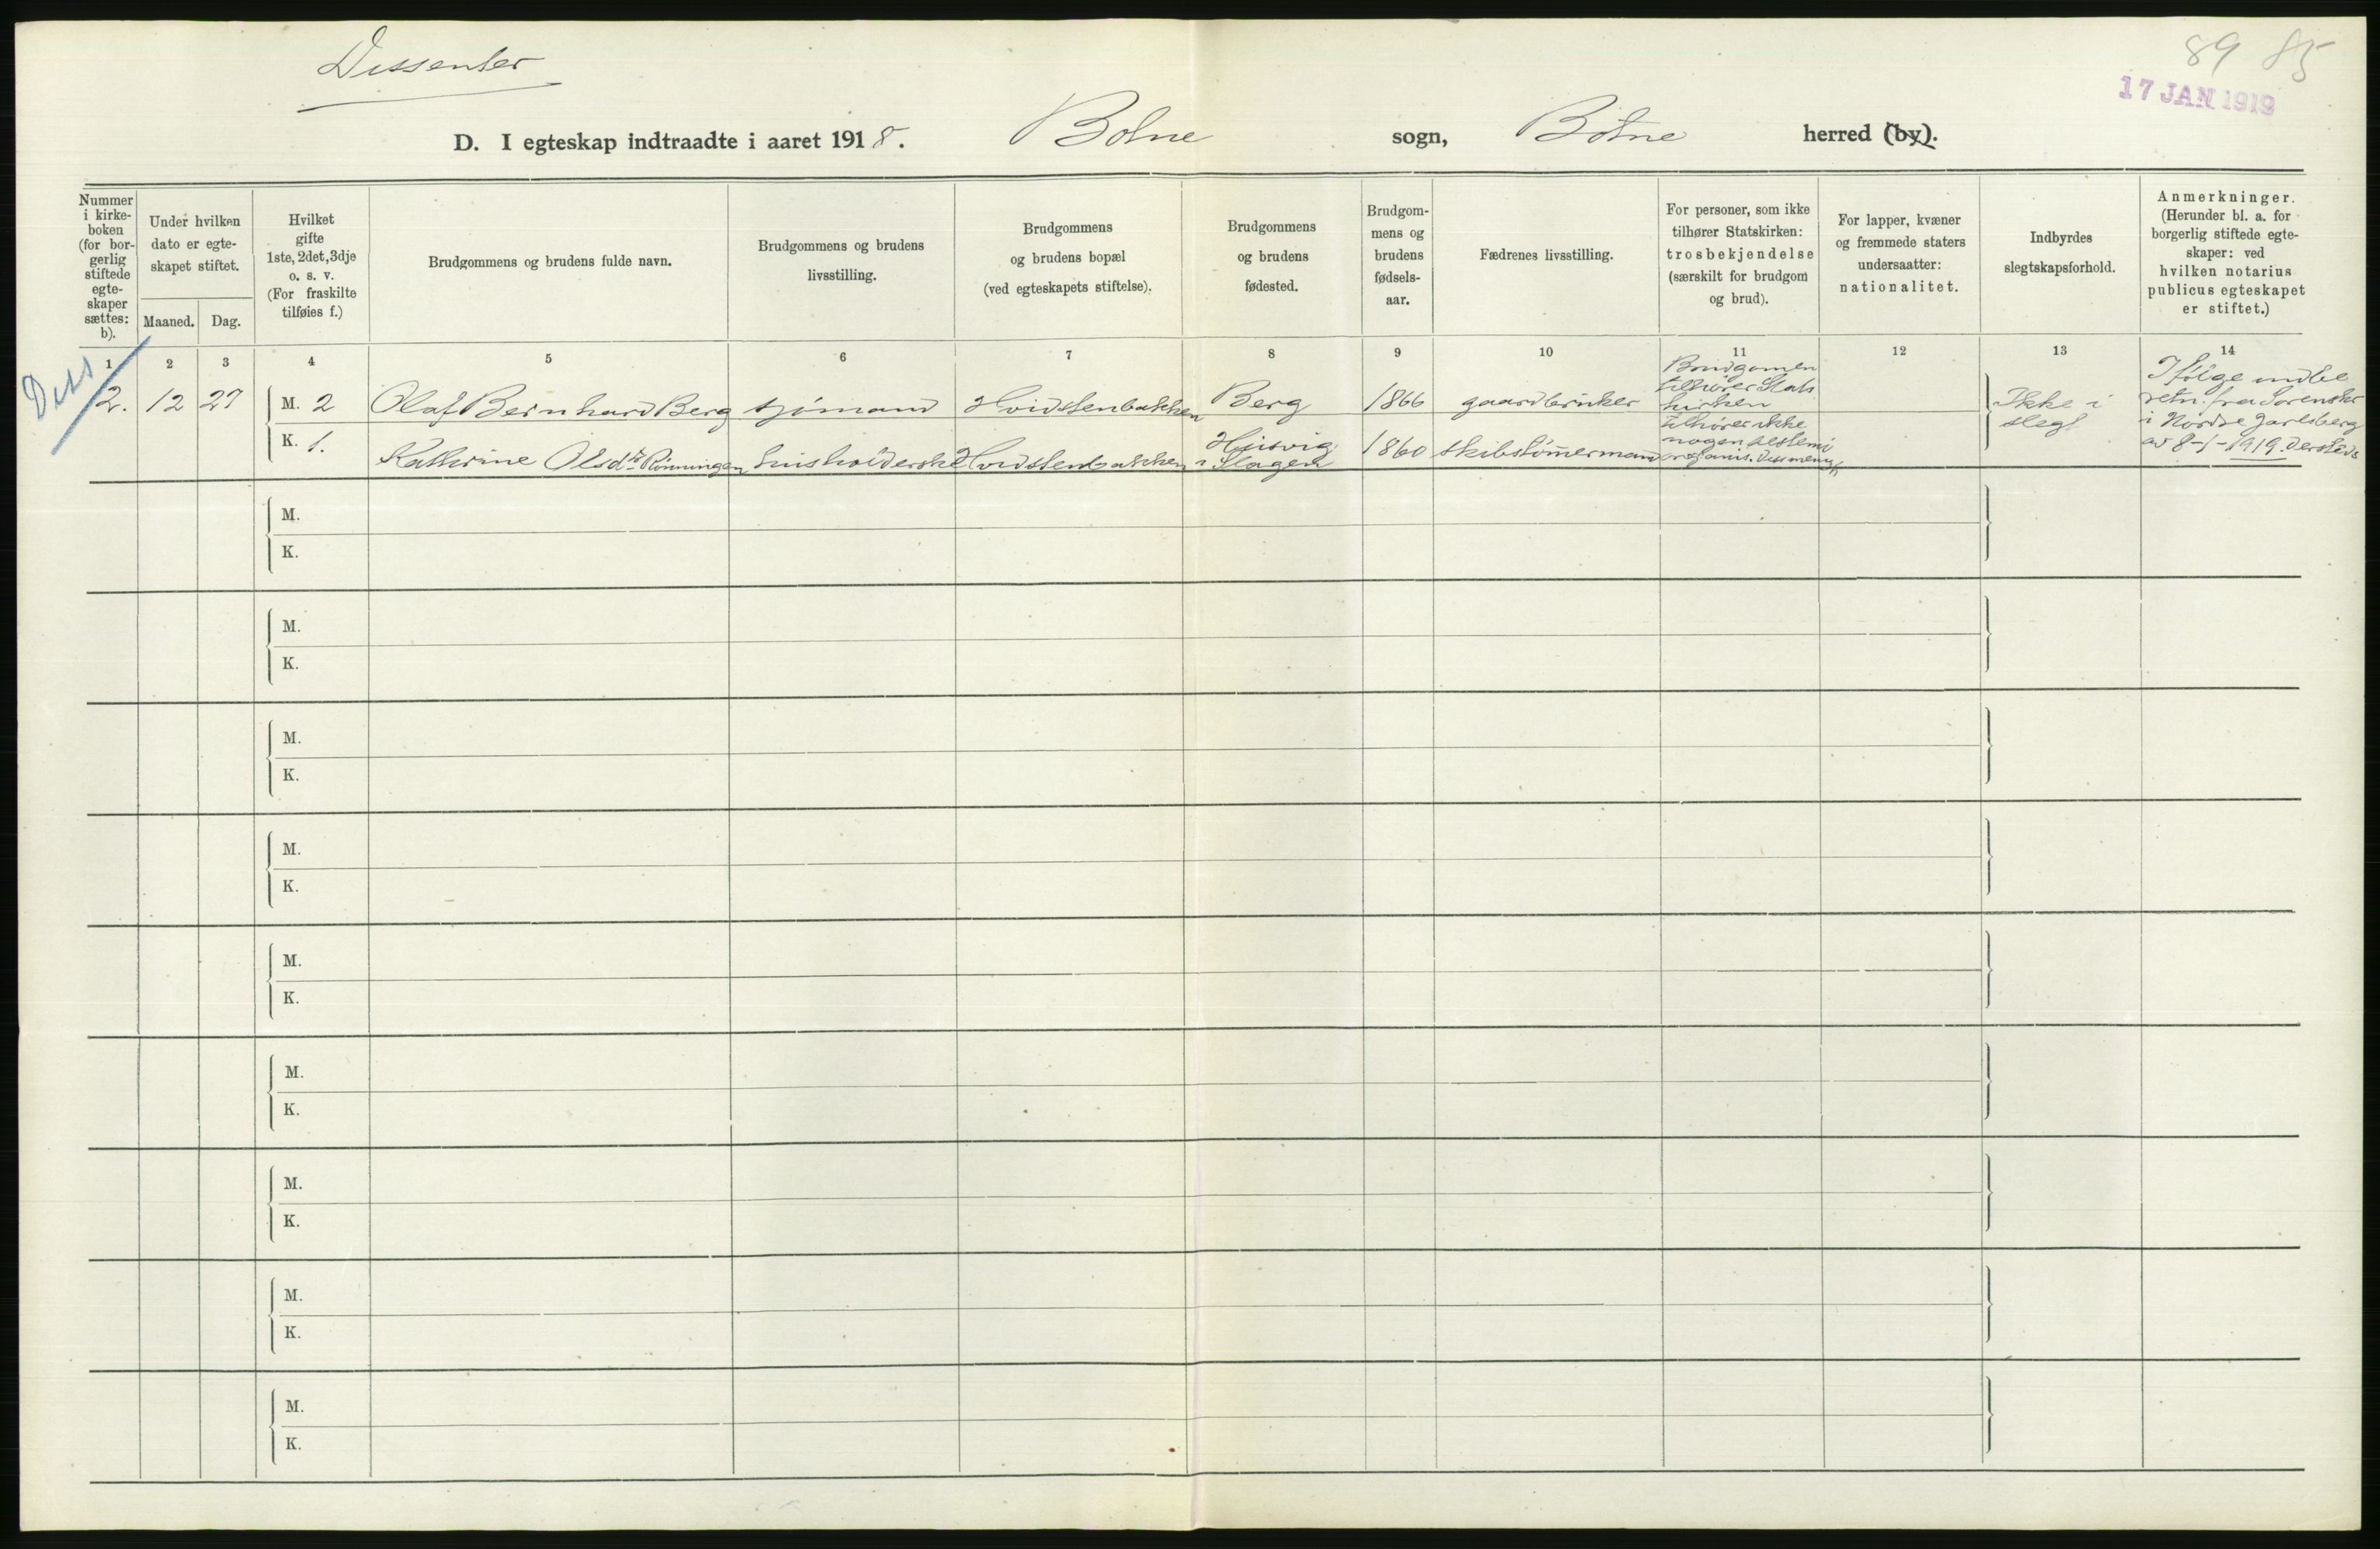 Dissenter
89 85
17 JAN 1919
D. I egteskap indtraadte i aaret 1918. Botne sogn, Botne herred (by).
Nummer i kirke-boken (for bor-gerlig stiftede egte-skaper sættes: b).
Under hvilken dato er egte-skapet stiftet.
Maaned. Dag.
Hvilket gifte 1ste, 2det, 3dje o. s. v. (For fraskilte tilføies f.)
Brudgommens og brudens fulde navn.
Brudgommens og brudens livsstilling.
Brudgommens og brudens bopæl (ved egteskapets stiftelse).
Brudgommens og brudens fødested.
Brudgom-mens og brudens fødsels-aar.
Fædrenes livsstilling.
For personer, som ikke tilhører Statskirken: trosbekjendelse (særskilt for brudgom og brud).
For lapper, kvæner og fremmede staters undersaatter: nationalitet.
Indbyrdes slegtskapsforhold.
Anmerkninger. (Herunder bl. a. for borgerlig stiftede egte-skaper: ved hvilken notarius publicus egteskapet er stiftet.)
1 2 3 4 5 6 7 8 9 10 11 12 13 14
Diss
2. 12 27 M. 2 Olaf Bernhard Berg sjømand Hvidstenbakken Berg 1866 gaardbruker
Brudgomen
tilhører Stats
kirken
K. 1. Kathrine Olsdtr Rønningen husholderske Hvidstenbakken
i Slagen 1860 skibstømermand
tilhører ikke
nogen bestemt
organis. Dissmenigh
Ikke i
slegt
Ifølge indbe
retn. fra Sorenskr
i Nordre Jarlsberg
av 8-1-1919
M.
K.
M.
K.
M.
K.
M.
K.
M.
K.
M.
K.
M.
K.
M.
K.
M.
K.